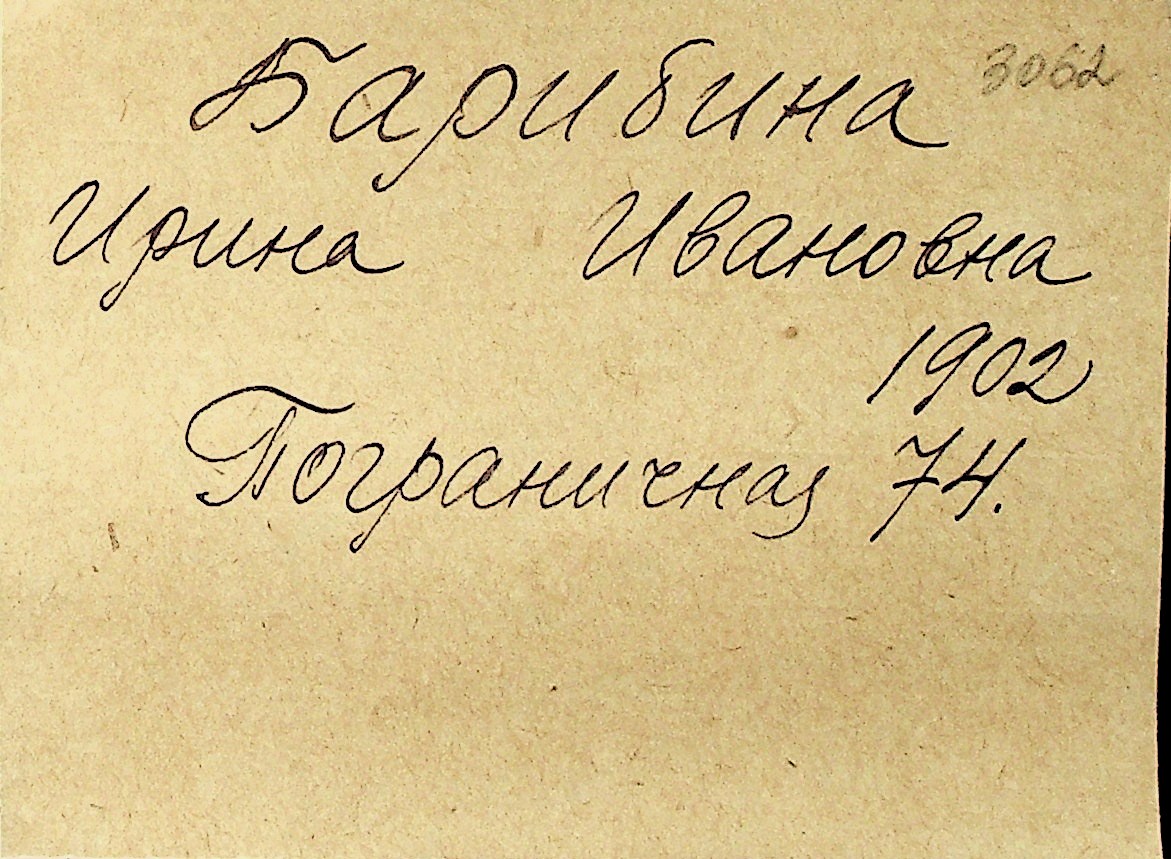 Барибина 3062
Ирина Ивановна
1902
Пограничная 74.